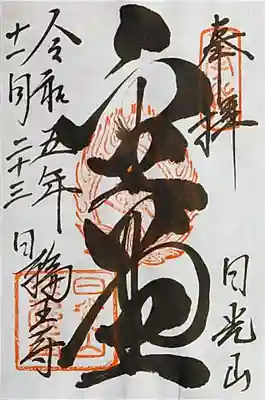 奉拝
日光山
金堂
令和五年
十一月二十三日
輪王寺